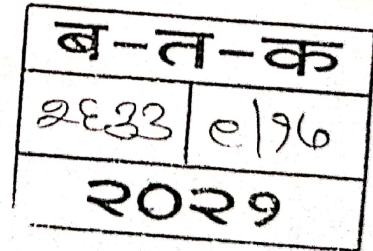 ब-त-क
२६३३ ९|१७
२०२१